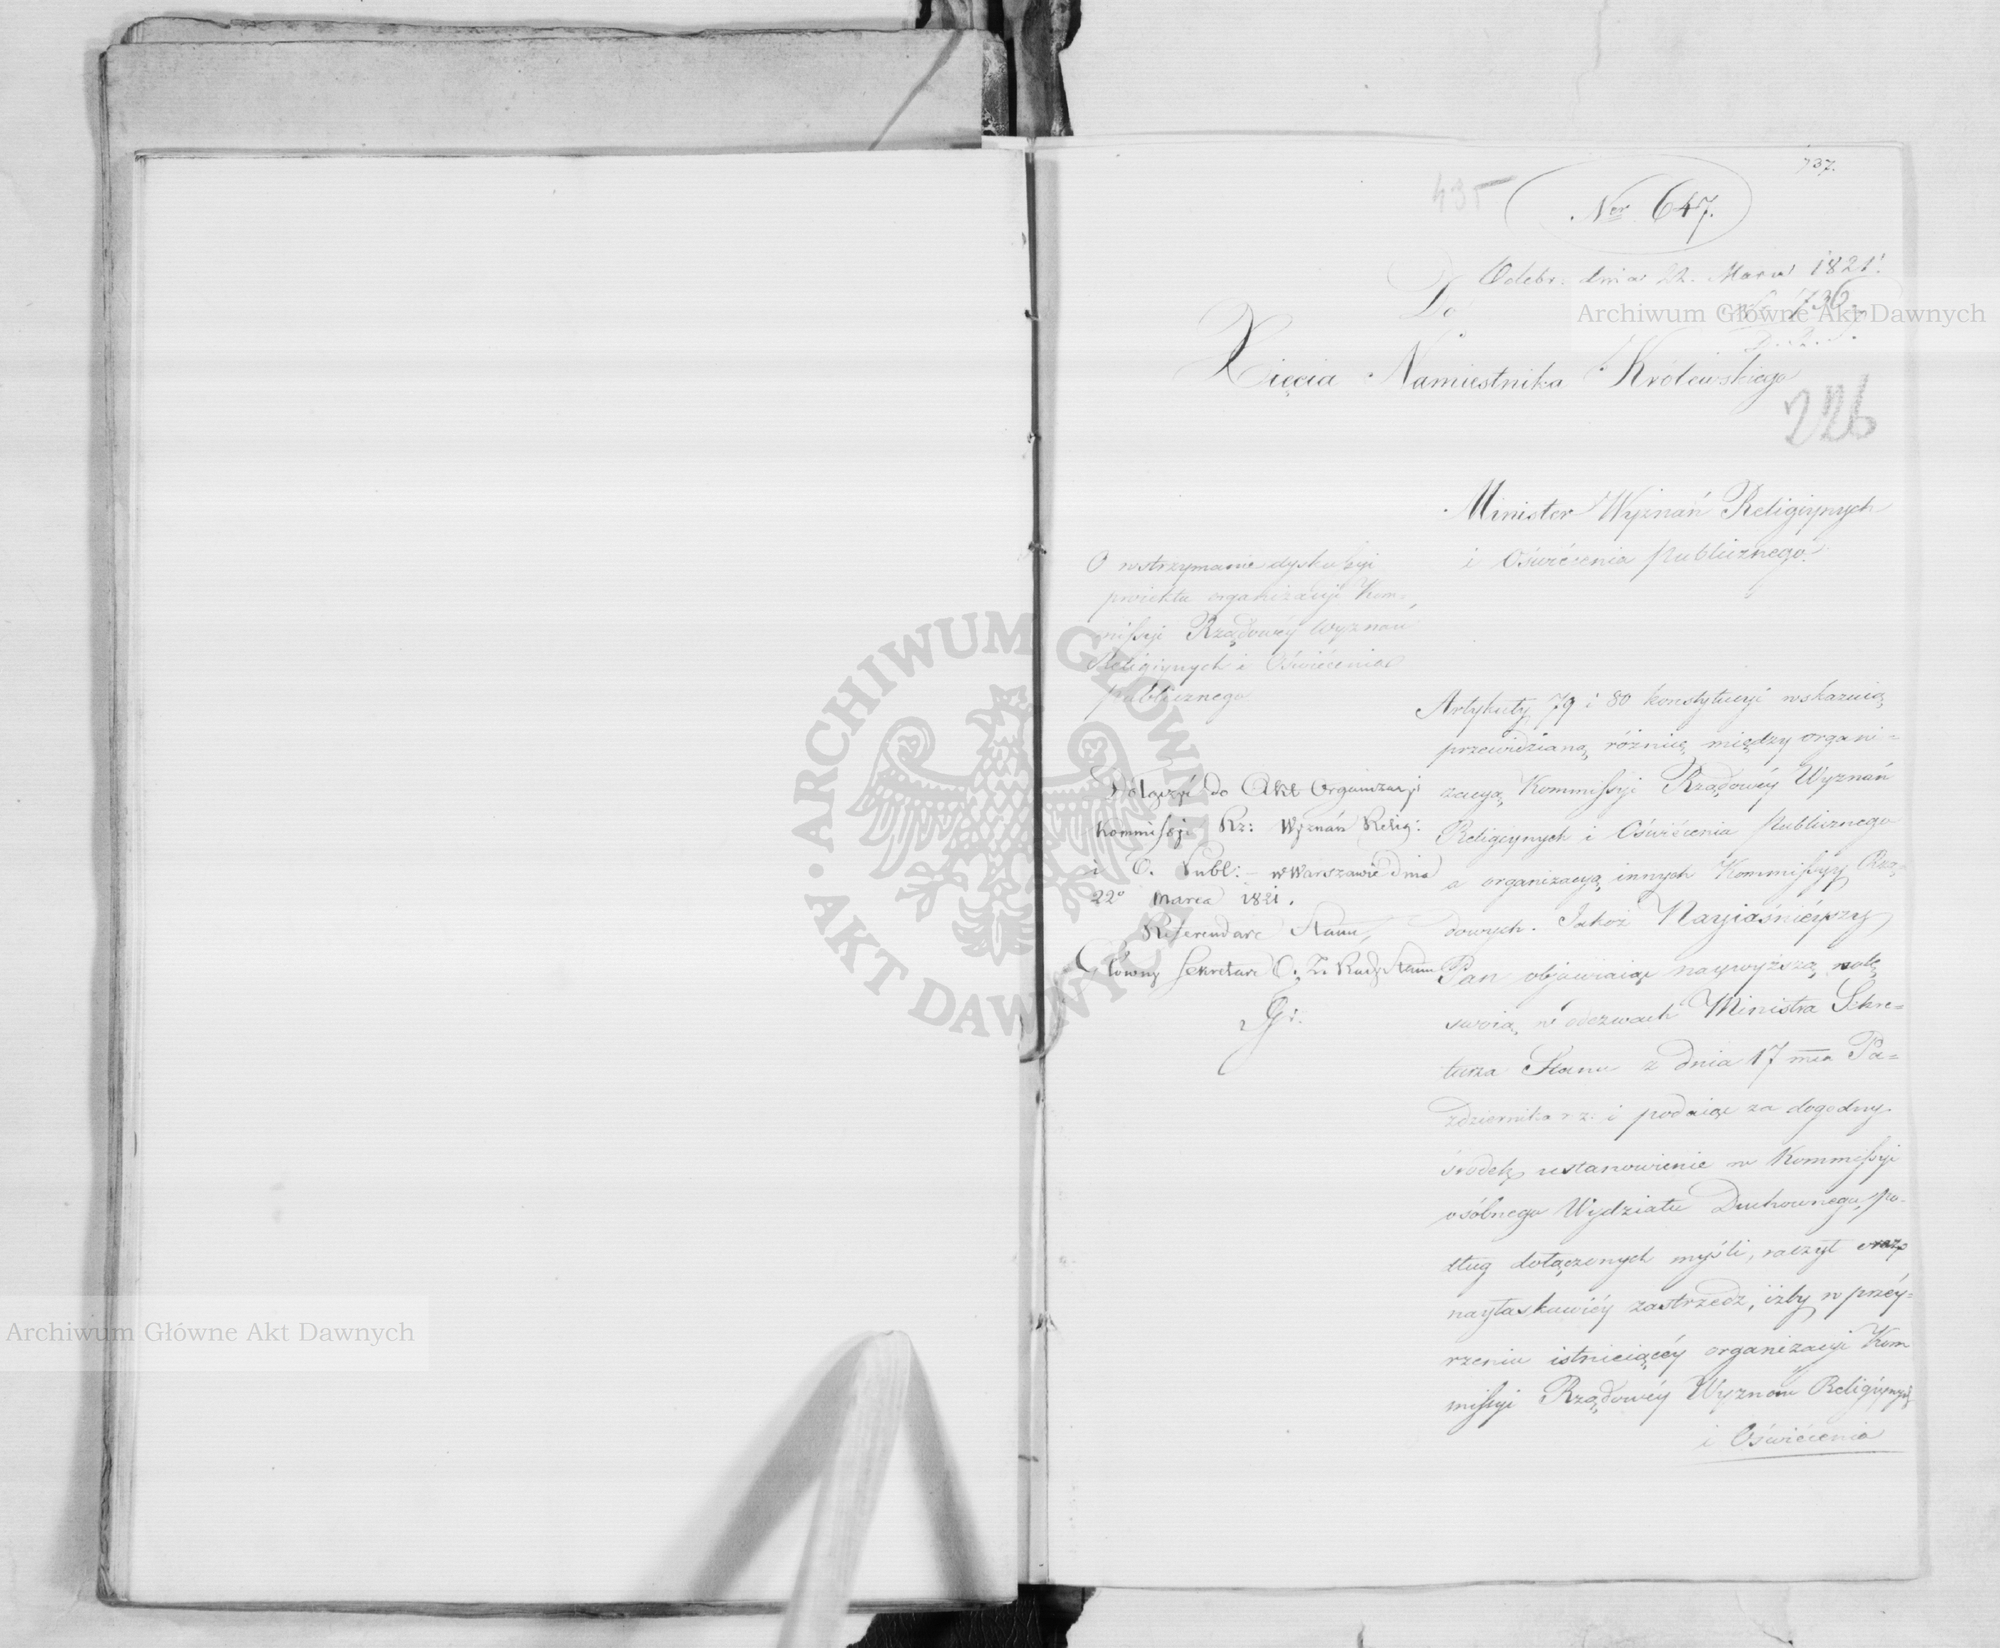 737.
435
Nro 647.
Odebr: dnia 22. Marca 1821.
No 736.
Do
Xięcia Namiestnika Królewskiego
226
Minister Wyznań Religiynych
i Oświécenia Publicznego.
O wstrzymanie dyskussyi
proiektu organizacyi Kom=
missyi Rządowéy Wyznań
Religiynych i Oświécenia
Publicznego
Dołączyć do Akt Organizacji
Kommissji Rz: Wyznań Relig:
i O. Publ: – w Warszawie dnia
22o Marca 1821.
Referendarz Stanu,
Główny Sekretarz O. Z. Rady Stanu
Artykuły 79 i 80 konstytucyi wskazuią
przewidzianą różnicę między organi=
zacyą Kommissyi Rządowéy Wyznań
Religiynych i Oświécenia Publicznego
a organizacyą innych Kommissyy Rzą=
dowych. Jakoż Nayiaśnieyszy
Pan obiawiaiąc naywyższą wolę
swoią w odezwach Ministra Sekre=
tarza Stanu z dnia 17 mca Pa=
zdziernika r z. i podaiąc za dogodny
środek ustanowienie w Kommissyi
osóbnego Wydziału Duchownego, po=
dług dołączonych myśli, raczył
nayłaskawiéy zastrzedz, iżby w przéy=
rzeniu istnieiącéy organizacyi Kom
missyi Rządowéy Wyznań Religiynych
i Oświécenia
Archiwum Główne Akt Dawnych
ARCHIWUM GŁÓWNE AKT DAWNYCH
Archiwum Główne Akt Dawnych